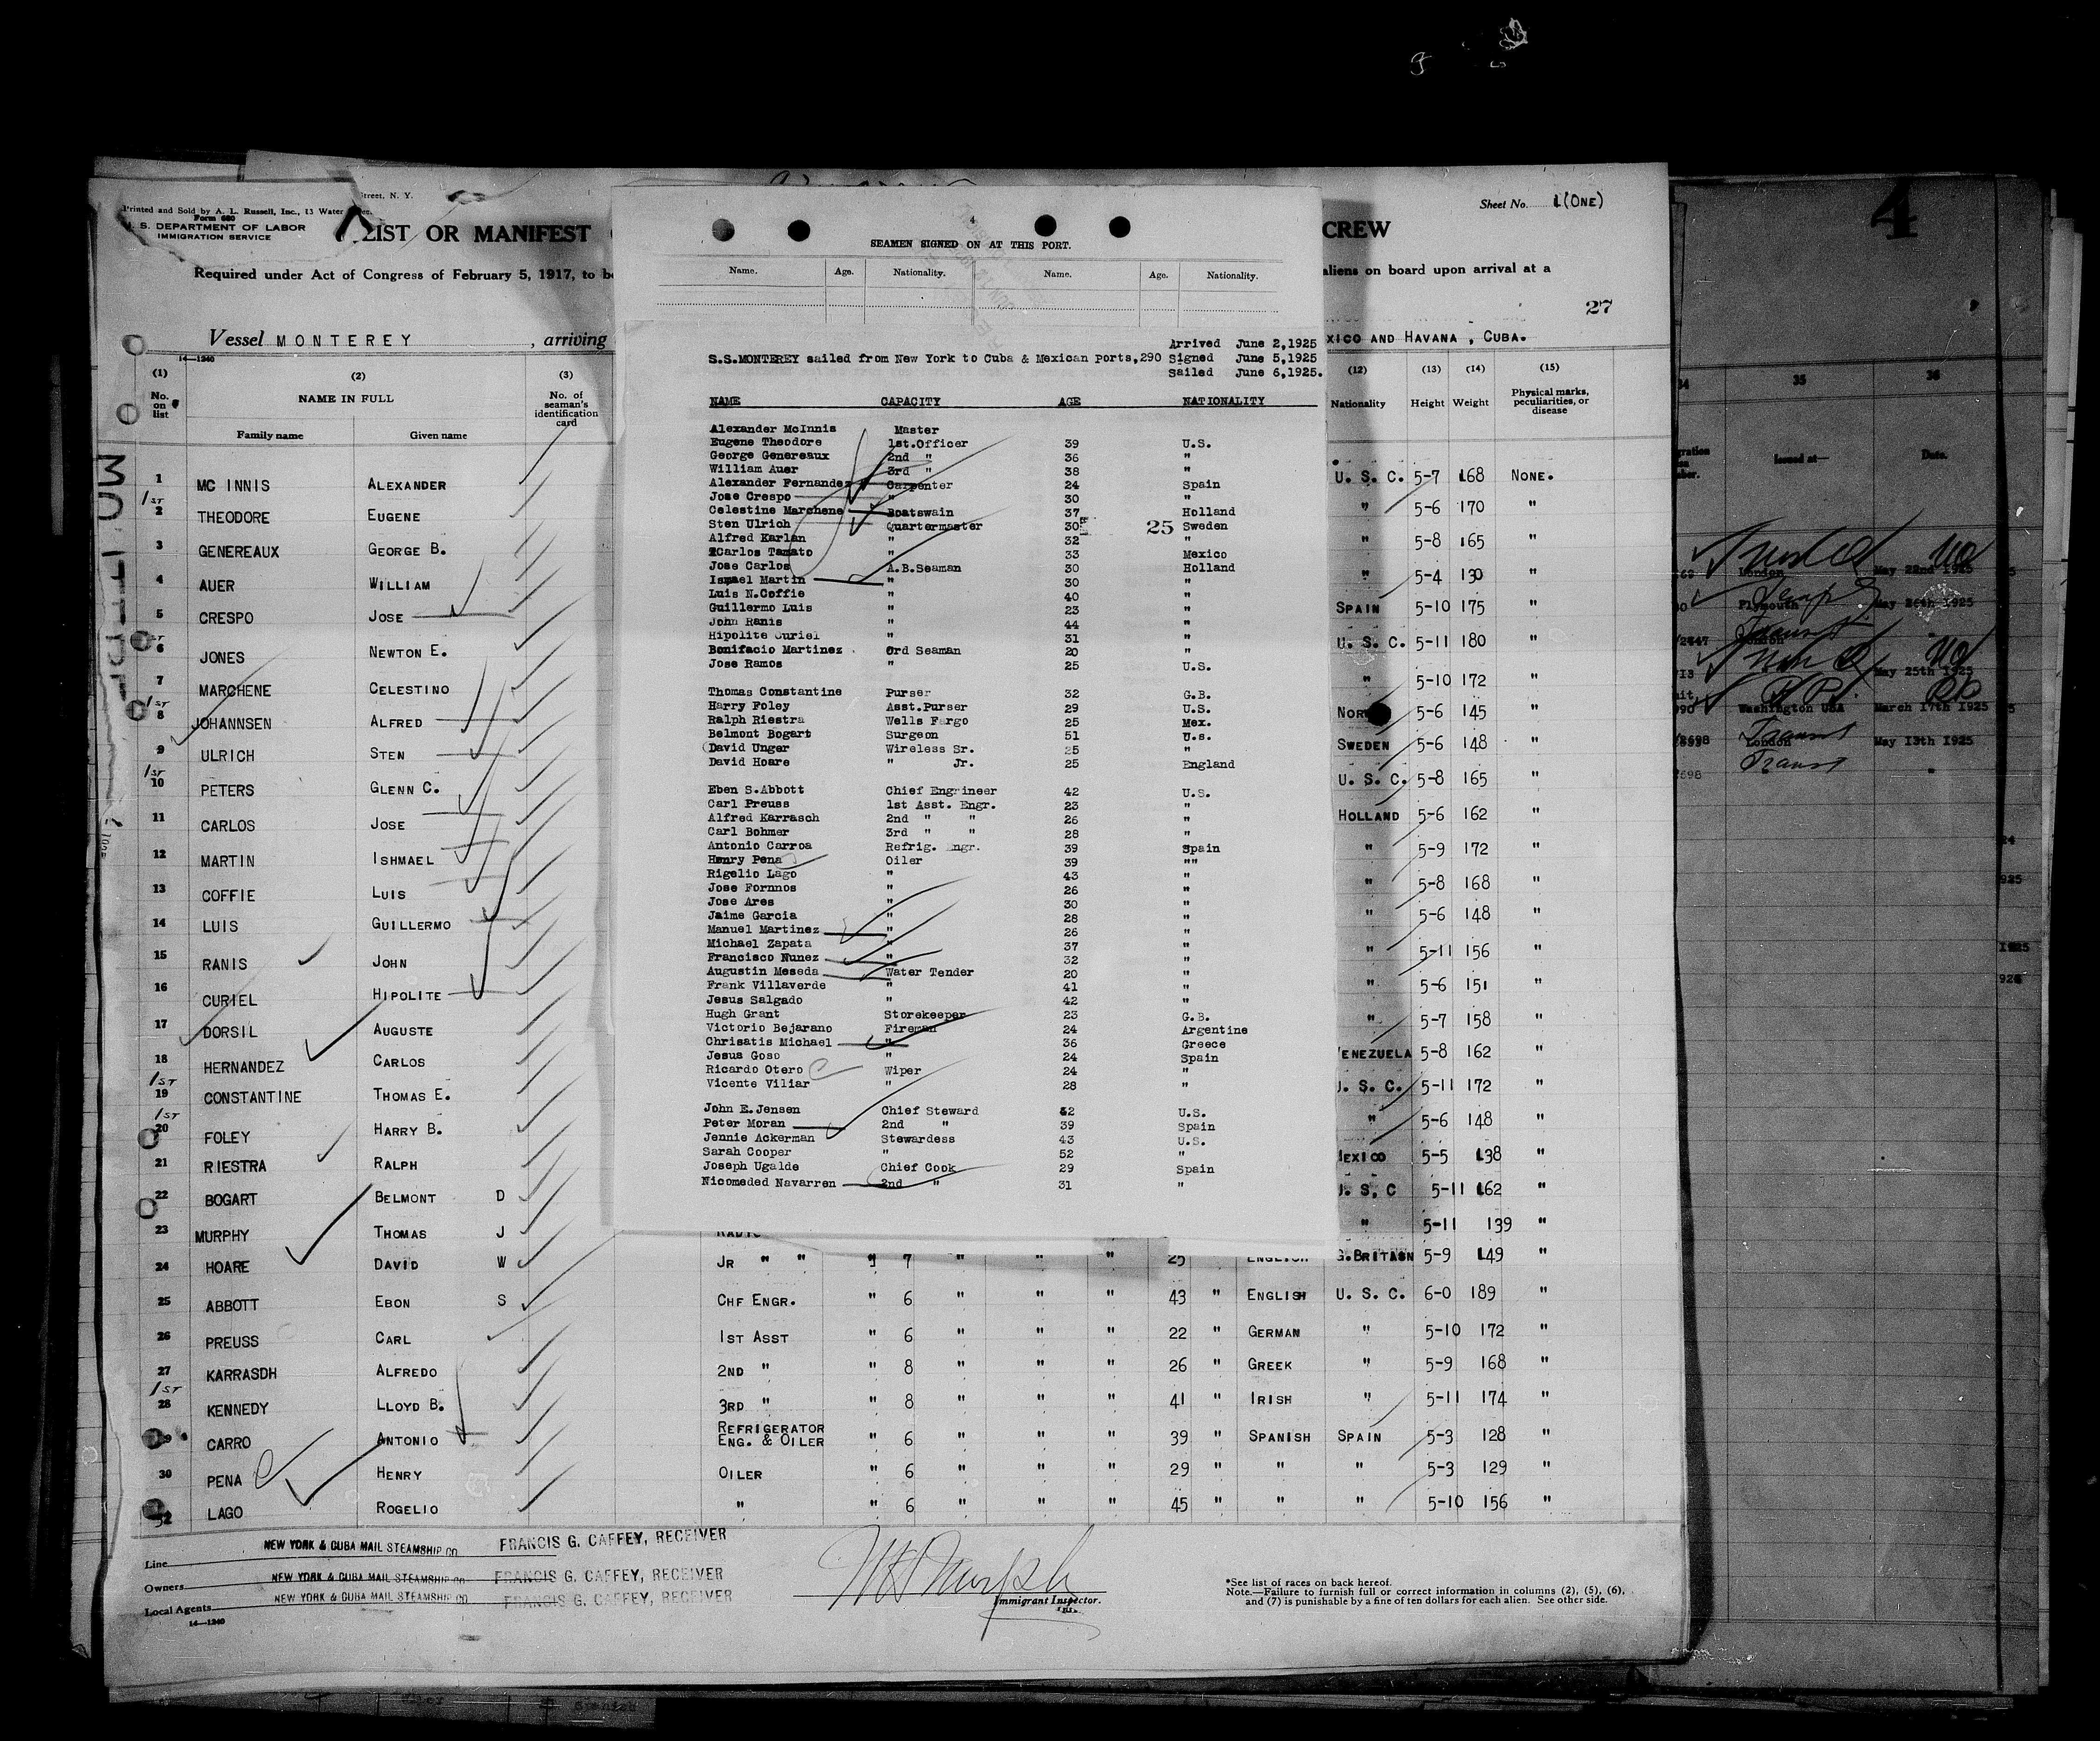 Street, N. Y.
Printed and Sold by A. L. Russell, Inc., 13 Water
Form 680
U. S. DEPARTMENT OF LABOR
IMMIGRATION SERVICE
LIST OR MANIFEST
CREW
Sheet No. 1 (ONE)
Required under Act of Congress of February 5, 1917, to be
aliens on board upon arrival at a
27
Vessel MONTEREY , arriving
XICO AND HAVANA , CUBA.
14—1240
(1) (2) (3) (12) (13) (14) (15)
No. on list NAME IN FULL No. of seaman's identification card Nationality Height Weight Physical marks, peculiarities, or disease
Family name Given name
1 MC INNIS ALEXANDER U. S. C. 5-7 168 NONE.
1/ST
2 THEODORE EUGENE " 5-6 170 "
3 GENEREAUX GEORGE B. " 5-8 165 "
4 AUER WILLIAM " 5-4 130 "
5 CRESPO JOSE SPAIN 5-10 175 "
6 JONES NEWTON E. U. S. C. 5-11 180 "
7 MARCHENE CELESTINO " 5-10 172 "
1/ST
8 JOHANNSEN ALFRED NOR 5-6 145 "
9 ULRICH STEN SWEDEN 5-6 148 "
1/ST
10 PETERS GLENN C. U. S. C. 5-8 165 "
11 CARLOS JOSE HOLLAND 5-6 162 "
12 MARTIN ISHMAEL " 5-9 172 "
13 COFFIE LUIS " 5-8 168 "
14 LUIS GUILLERMO " 5-6 148 "
15 RANIS JOHN " 5-11 156 "
16 CURIEL HIPOLITE " 5-6 151 "
17 DORSIL AUGUSTE " 5-7 158 "
18 HERNANDEZ CARLOS VENEZUELA 5-8 162 "
1/ST
19 CONSTANTINE THOMAS E. U. S. C. 5-11 172 "
1/ST
20 FOLEY HARRY B. " 5-6 148 "
21 RIESTRA RALPH MEXICO 5-5 138 "
22 BOGART BELMONT D U. S, C 5-11 162 "
23 MURPHY THOMAS J RADIO " 5-11 139 "
24 HOARE DAVID W JR " " " 7 " " " 25 " ENGLISH G.BRITASN 5-9 149 "
25 ABBOTT EBON S CHF ENGR. " 6 " " " 43 " ENGLISH U. S. C. 6-0 189 "
26 PREUSS CARL 1ST ASST " 6 " " " 22 " GERMAN " 5-10 172 "
27 KARRASDH ALFREDO 2ND " " 8 " " " 26 " GREEK " 5-9 168 "
1/ST
28 KENNEDY LLOYD B. 3RD " " 8 " " " 41 " IRISH " 5-11 174 "
29 CARRO ANTONIO REFRIGERATOR ENG. & OILER " 6 " " " 39 " SPANISH SPAIN 5-3 128 "
30 PENA HENRY OILER " 6 " " " 29 " " " 5-3 129 "
LAGO ROGELIO " " 6 " " " 45 " " " 5-10 156 "
4
SEAMEN SIGNED ON AT THIS PORT.
Name. Age. Nationality. Name. Age. Nationality.
Arrived June 2,1925
S.S.MONTEREY sailed from New York to Cuba & Mexican ports,290 Signed June 5,1925
Sailed June 6,1925.
NAME CAPACITY AGE NATIONALITY
Alexander McInnis Master
Eugene Theodore 1st.Officer 39 U.S.
George Genereaux 2nd " 36 "
William Auer 3rd " 38 "
Alexander Fernandez Carpenter 24 Spain
Jose Crespo " 30 "
Celestine Marchene Boatswain 37 Holland
Sten Ulrich Quartermaster 30 25 Sweden
Alfred Karlan " 32 "
Carlos Tamato " 33 Mexico
Jose Carlos A.B.Seaman 30 Holland
Ismael Martin " 30 "
Luis N.Coffie " 40 "
Guillermo Luis " 23 "
John Ranis " 44 "
Hipolite Curiel " 31 "
Bonifacio Martinez Ord Seaman 20 "
Jose Ramos " 25 U.S.
Thomas Constantine Purser 32 G.B.
Harry Foley Asst.Purser 29 U.S.
Ralph Riestra Wells Fargo 25 Mex.
Belmont Bogart Surgeon 51 U.s.
David Unger Wireless Sr. 25 "
David Hoare " Jr. 25 England
Eben S.Abbott Chief Engrineer 42 U.S.
Carl Preuss 1st Asst. Engr. 23 "
Alfred Karrasch 2nd " " 26 "
Carl Bohmer 3rd " " 28 "
Antonio Carroa Refrig. Engr. 39 Spain
Henry Pena Oiler 39 ""
Rigelio Lago " 43 "
Jose Fornnos " 26 "
Jose Ares " 30 "
Jaime Garcia " 28 "
Manuel Martinez " 26 "
Michael Zapata " 37 "
Francisco Nunez " 32 "
Augustin Meseda Water Tender 20 "
Frank Villaverde " 41 "
Jesus Salgado " 42 "
Hugh Grant Storekeeper 23 G.B.
Victorio Bejarano Fireman 24 Argentine
Chrisatis Michael " 36 Greece
Jesus Goso " 24 Spain
Ricardo Otero Wiper 24 "
Vicente Viliar " 28 "
John E.Jensen Chief Steward 52 U.S.
Peter Moran 2nd " 39 Spain
Jennie Ackerman Stewardess 43 U.S.
Sarah Cooper " 52 "
Joseph Ugalde Chief Cook 29 Spain
Nicomeded Navarren 2nd " 31 "
Line NEW YORK & CUBA MAIL STEAMSHIP CO FRANCIS G. CAFFEY, RECEIVER
Owners NEW YORK & CUBA MAIL STEAMSHIP CO FRANCIS G. CAFFEY, RECEIVER
Local Agents NEW YORK & CUBA MAIL STEAMSHIP CO. FRANCIS G. CAFFEY, RECEIVER
14—1240
Immigrant Inspector.
*See list of races on back hereof.
Note.—Failure to furnish full or correct information in columns (2), (5), (6),
and (7) is punishable by a fine of ten dollars for each alien. See other side.
4
34 35 36
Issued at— Date.
London May 22nd 1925
Plymouth May 26th 1925
London
May 25th 1925
Washington USA March 17th 1925
London May 13th 1925
Transit